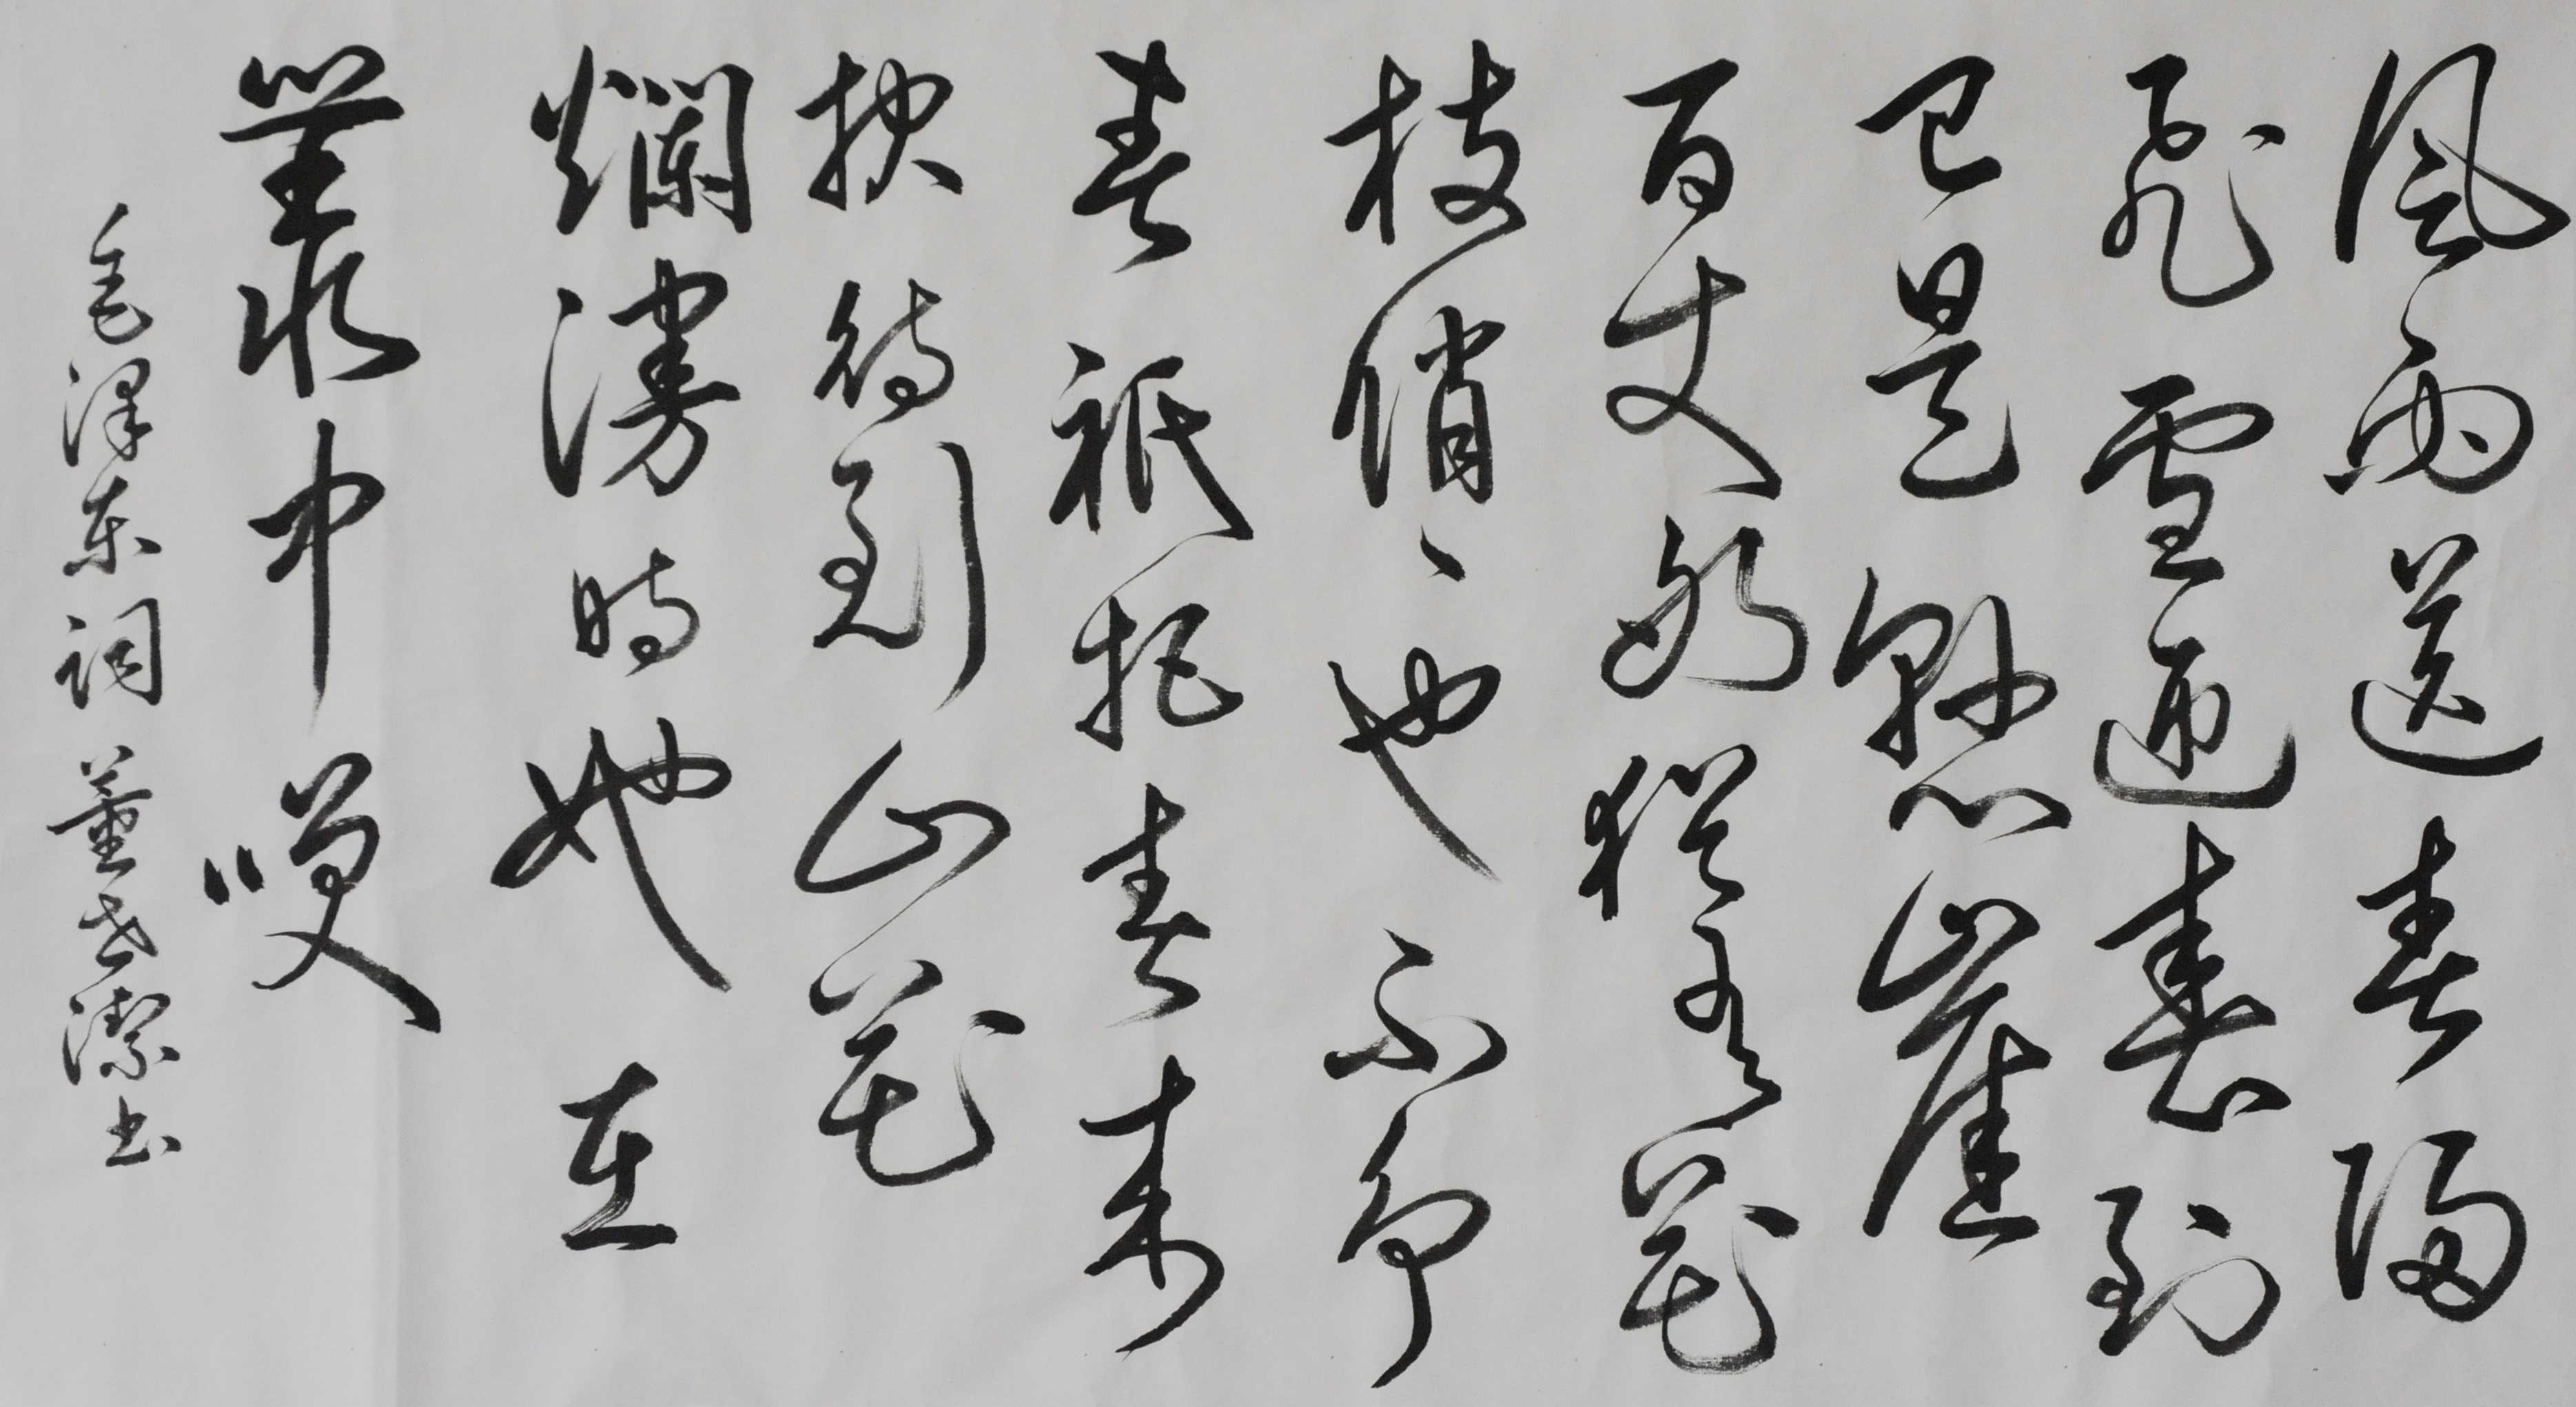 風雨送春歸
飛雪迎春到
已是懸崖
百丈冰猶有花
枝俏、也不爭
春祇把春來
报待到山花
爛漫時她在
叢中笑
毛泽东词 董潔书